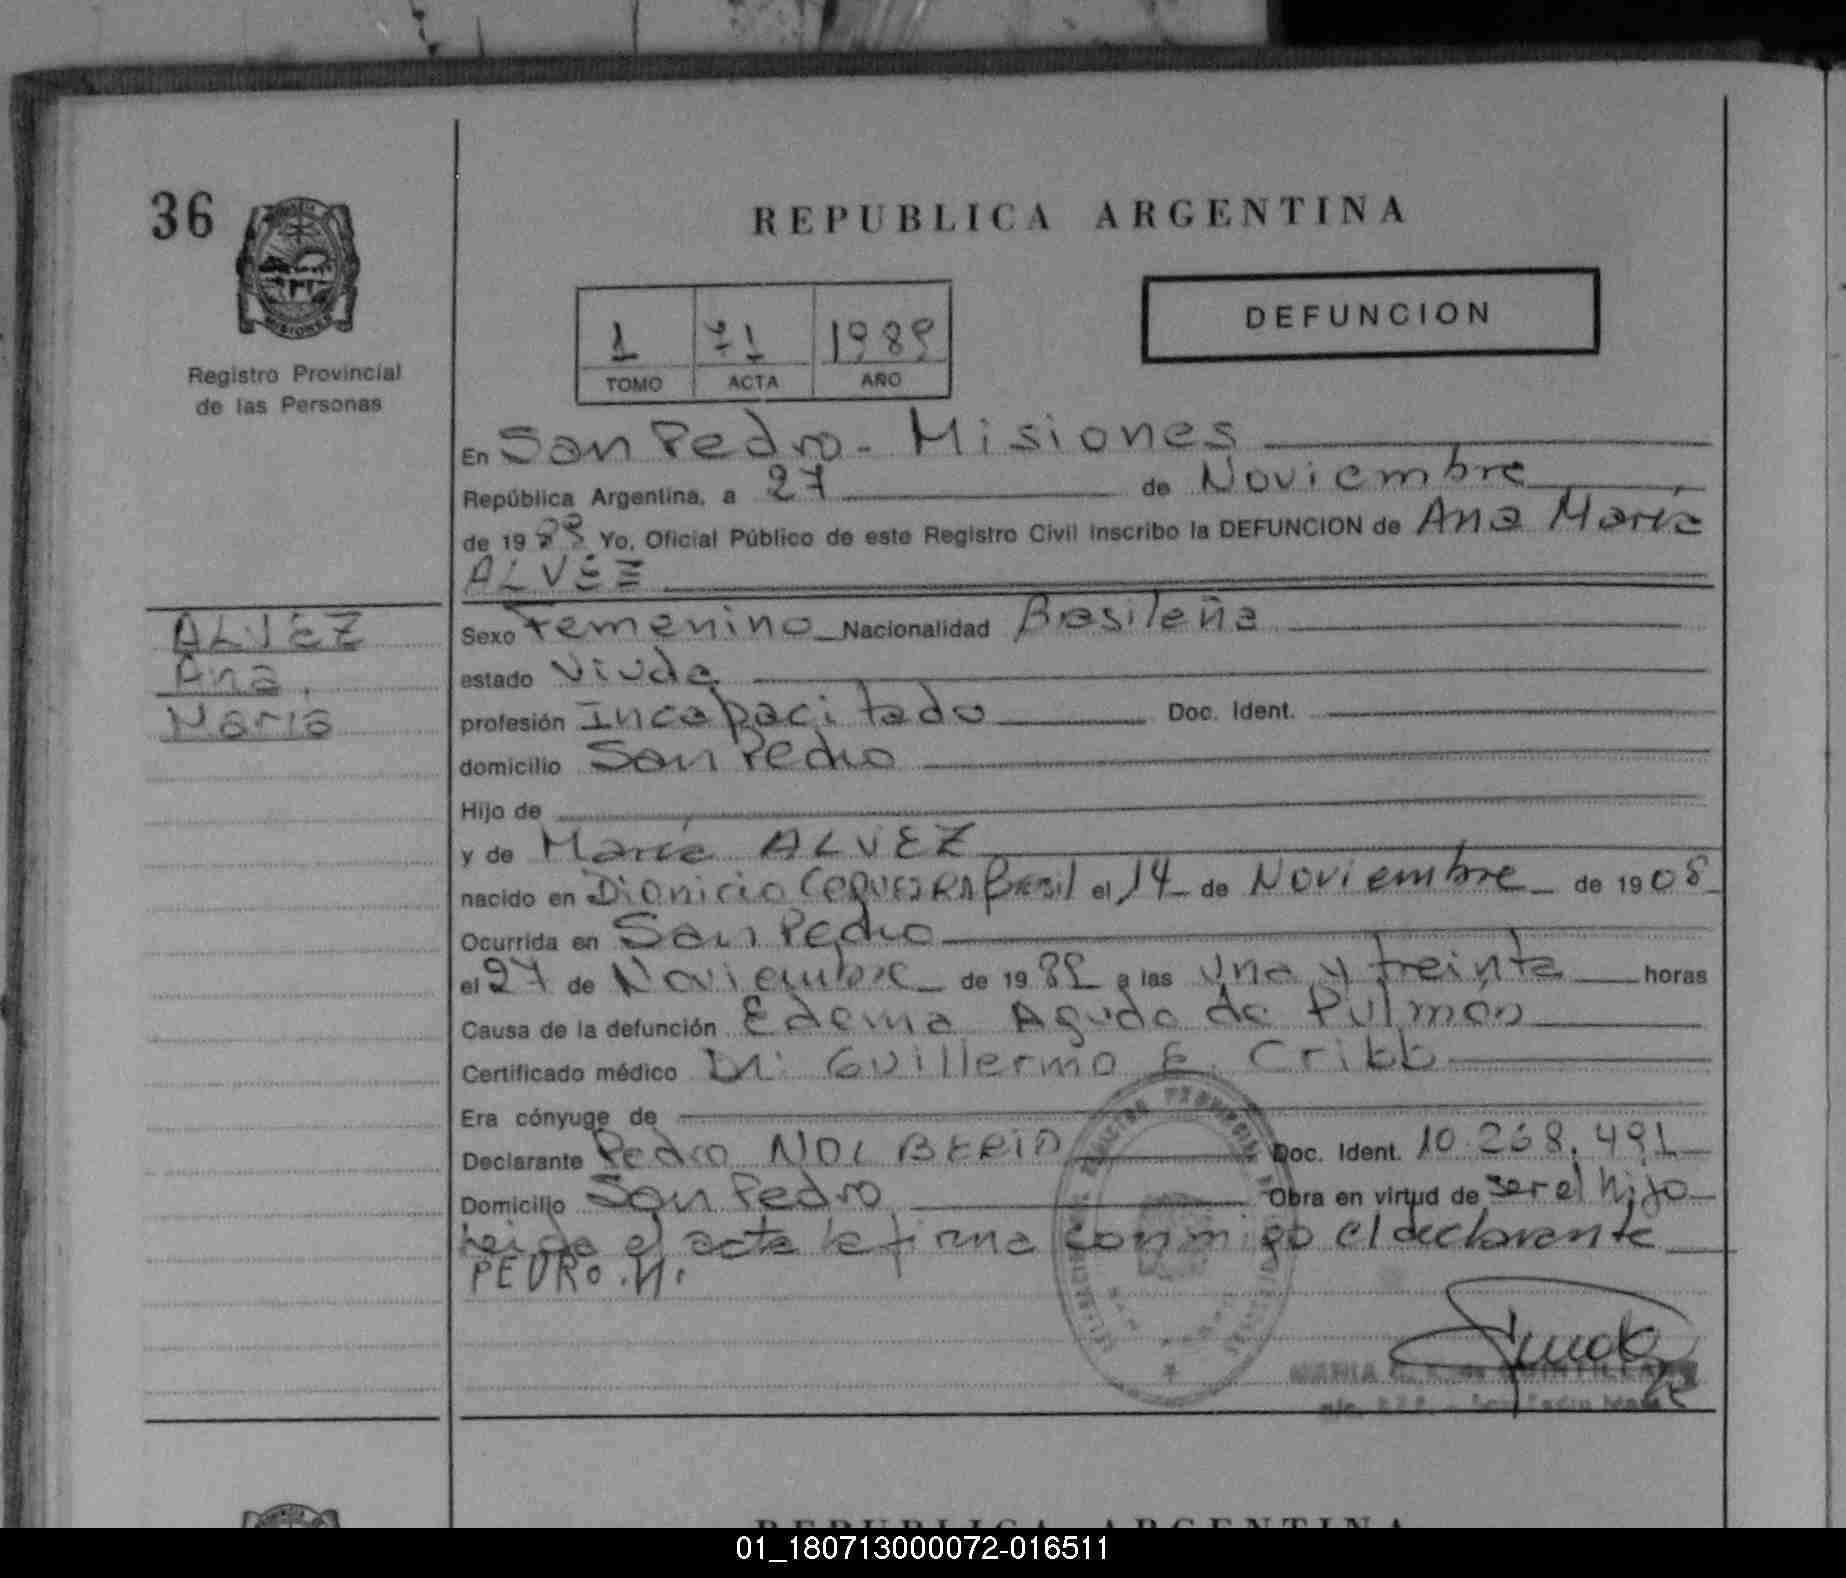 36
REPUBLICA ARGENTINA
MISIONES
Registro Provincial
de las Personas
1 71 1989
TOMO ACTA AÑO
DEFUNCION
En San Pedro - Misiones
República Argentina, a 27 de Noviembre
de 1989 Yo, Oficial Público de este Registro Civil inscribo la DEFUNCION de Ana María
ALVEZ
ALVEZ
Ana
María
Sexo Femenino Nacionalidad Brasileña
estado Viuda
profesión Incapacitado Doc. Ident.
domicilio San Pedro
Hijo de
y de María ALVEZ
nacido en Dionicio CERQUEIRA Brasil el 14 de Noviembre de 1908
Ocurrida en San Pedro
el 27 de Noviembre de 1989 a las una y treinta horas
Causa de la defunción Edema Agudo de Pulmón
Certificado médico Dr. Guillermo E. Cribb
Era cónyuge de
Declarante Pedro Doc. Ident. 10.268.491
Domicilio San Pedro Obra en virtud de ser el hijo
Leida el acta la firma conmigo el declarante
PEDRO .N.
MARIA de QUINTILLA
REPUBLICA ARGENTINA
01_180713000072-016511